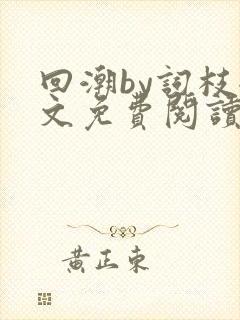 回潮by詞枝
文免費閱讀
黃正東